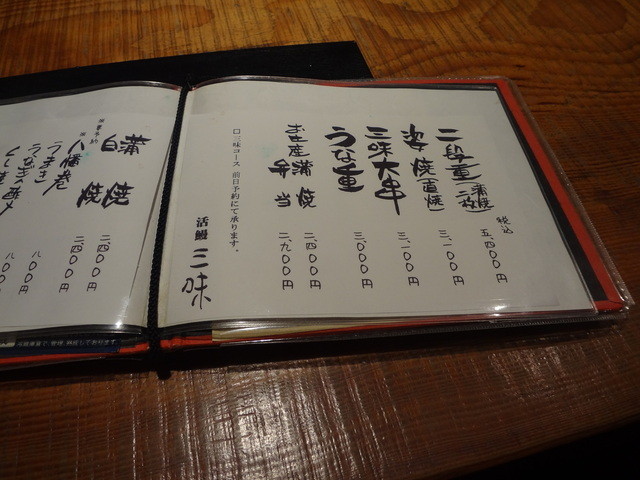 税込
二段重(蒲焼二枚) 五、四〇〇円
姿焼(直焼) 三、一〇〇円
三味大串 三、一〇〇円
うな重 三、〇〇〇円
お土産 蒲焼 二、四〇〇円
弁当 二、九〇〇円
口三味コース 前日予約にて承ります。
活鰻 三味
蒲焼 二、四〇〇円
白焼 二、四〇〇円
※要予約
※八幡巻 八〇〇円
うまき 八〇〇円